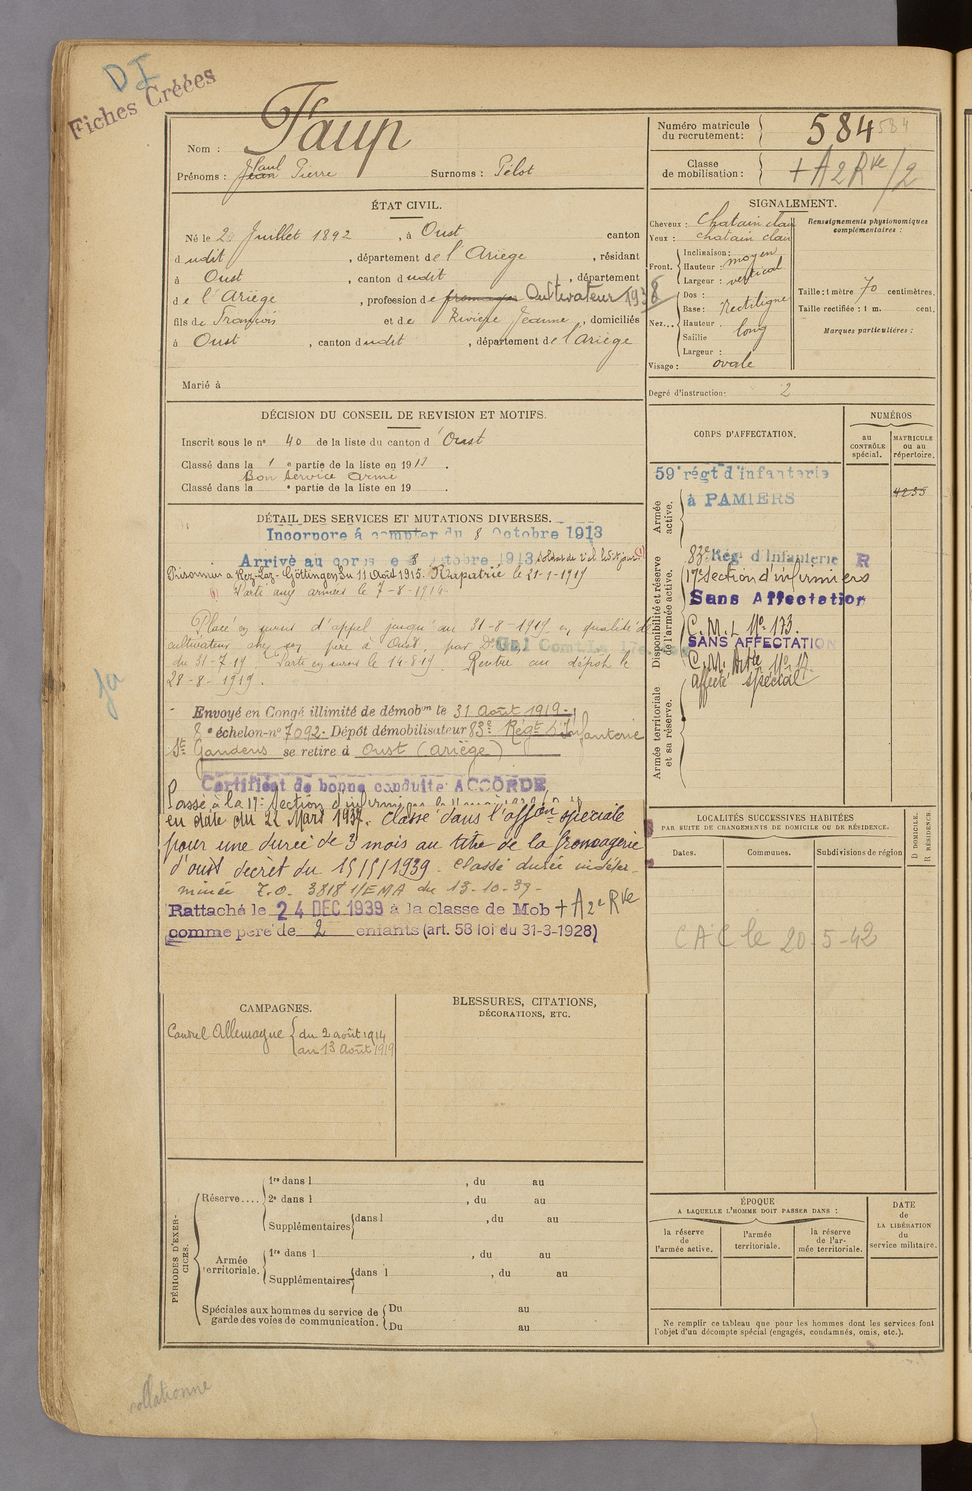 DI
Fiches Créées
Nom : Faup
Prénoms : Jean Paul Pierre Surnoms : Pélot
ÉTAT CIVIL.
Né le 2 Juillet 1892, à Oust canton
dudit, département de l'Ariège, résidant
à Oust, canton dudit, département
de l'Ariège, profession de fromager Cultivateur 1938
fils de François et de Rivière Jeanne, domiciliés
à Oust, canton dudit, département de l'Ariège
Marié à
DÉCISION DU CONSEIL DE REVISION ET MOTIFS.
Inscrit sous le n° 40 de la liste du canton d'Oust
Classé dans la 1e partie de la liste en 1913.
Bon service armé
Classé dans la e partie de la liste en 19 .
DÉTAIL DES SERVICES ET MUTATIONS DIVERSES.
Incorporé à compter du 8 Octobre 1913
Arrivé au corps le 8 Octobre 1913, soldat de 2e cl. ledit jour (1)
Prisonnier à Göttingen du 11 Août 1915. Rapatrié le 21-1-1919
(1) Parti aux armées le 7-8-1914.
Placé en sursis d'appel jusqu'au 31-8-1919 en qualité de
cultivateur chez son père à Oust, par Don Gal Comdt
du 31-7-19. Parti en sursis le 14 8 19. Rentré au dépôt le
28-8-1919.
Envoyé en Congé illimité de démobon le 31 Août 1919.
8e échelon-n° 7092. Dépôt démobilisateur 83e Régt d'Infanterie
St Gaudens se retire à Oust (Ariège)
Certificat de bonne conduite ACCORDÉ
Passé à la 17e Section d'infirmiers
en date du 22 Mars 1937. Classé dans l'affon spéciale
pour une durée de 3 mois au titre de la fromagerie
d'oust décret du 15/5/1939. Classé durée indéter-
minée T.O. 3818 1/EMA du 13-10-39-
Rattaché le 24 DEC 1939 à la classe de Mob + A 2e Rve
comme père de 2 enfants (art. 58 loi du 31-3-1928)
CAMPAGNES.
Contre l'Allemagne { du 2 août 1914
au 13 Août 1919
BLESSURES, CITATIONS,
DÉCORATIONS, ETC.
PÉRIODES D'EXER-
CICES.
Réserve....
1re dans l , du au
2e dans l , du au
Supplémentaires { dans l , du au
Armée
territoriale.
1re dans l , du au
Supplémentaires { dans l , du au
Spéciales aux hommes du service de
garde des voies de communication. { Du au
Du au
collationné
Numéro matricule
du recrutement : 584 584
Classe
de mobilisation : + A 2 Rve/2
SIGNALEMENT.
Cheveux : chatain clair
Yeux : chatain clair
Front. Inclinaison : moyen
Hauteur : vertical
Largeur :
Nez... Dos :
Base : Rectiligne
Hauteur :
Saillie long
Largeur :
Visage : ovale
Renseignements physionomiques
complémentaires :
Taille : 1 mètre 70 centimètres.
Taille rectifiée : 1 m. cent.
Marques particulières :
Degré d'instruction : 2
CORPS D'AFFECTATION.
NUMÉROS
au
CONTRÔLE
spécial.
MATRICULE
ou au
répertoire.
Armée
active.
59e régt d'infanterie
à PAMIERS
4255
Disponibilité et réserve
de l'armée active.
83e Régt d'Infanterie R
17e section d'infirmiers
Sans Affectation
C.M.I. No 173.
SANS AFFECTATION
C.M. Artie No 17
affecté spécial
Armée territoriale
et sa réserve.
LOCALITÉS SUCCESSIVES HABITÉES
PAR SUITE DE CHANGEMENTS DE DOMICILE OU DE RÉSIDENCE.
Dates.
Communes.
Subdivisions de région
D DOMICILE.
R RÉSIDENCE.
CAC le 20-5-42
ÉPOQUE
A LAQUELLE L'HOMME DOIT PASSER DANS :
DATE
de
LA LIBÉRATION
du
service militaire.
la réserve
de
l'armée active.
l'armée
territoriale.
la réserve
de l'ar-
mée territoriale.
Ne remplir ce tableau que pour les hommes dont les services font
l'objet d'un décompte spécial (engagés, condamnés, omis, etc.).